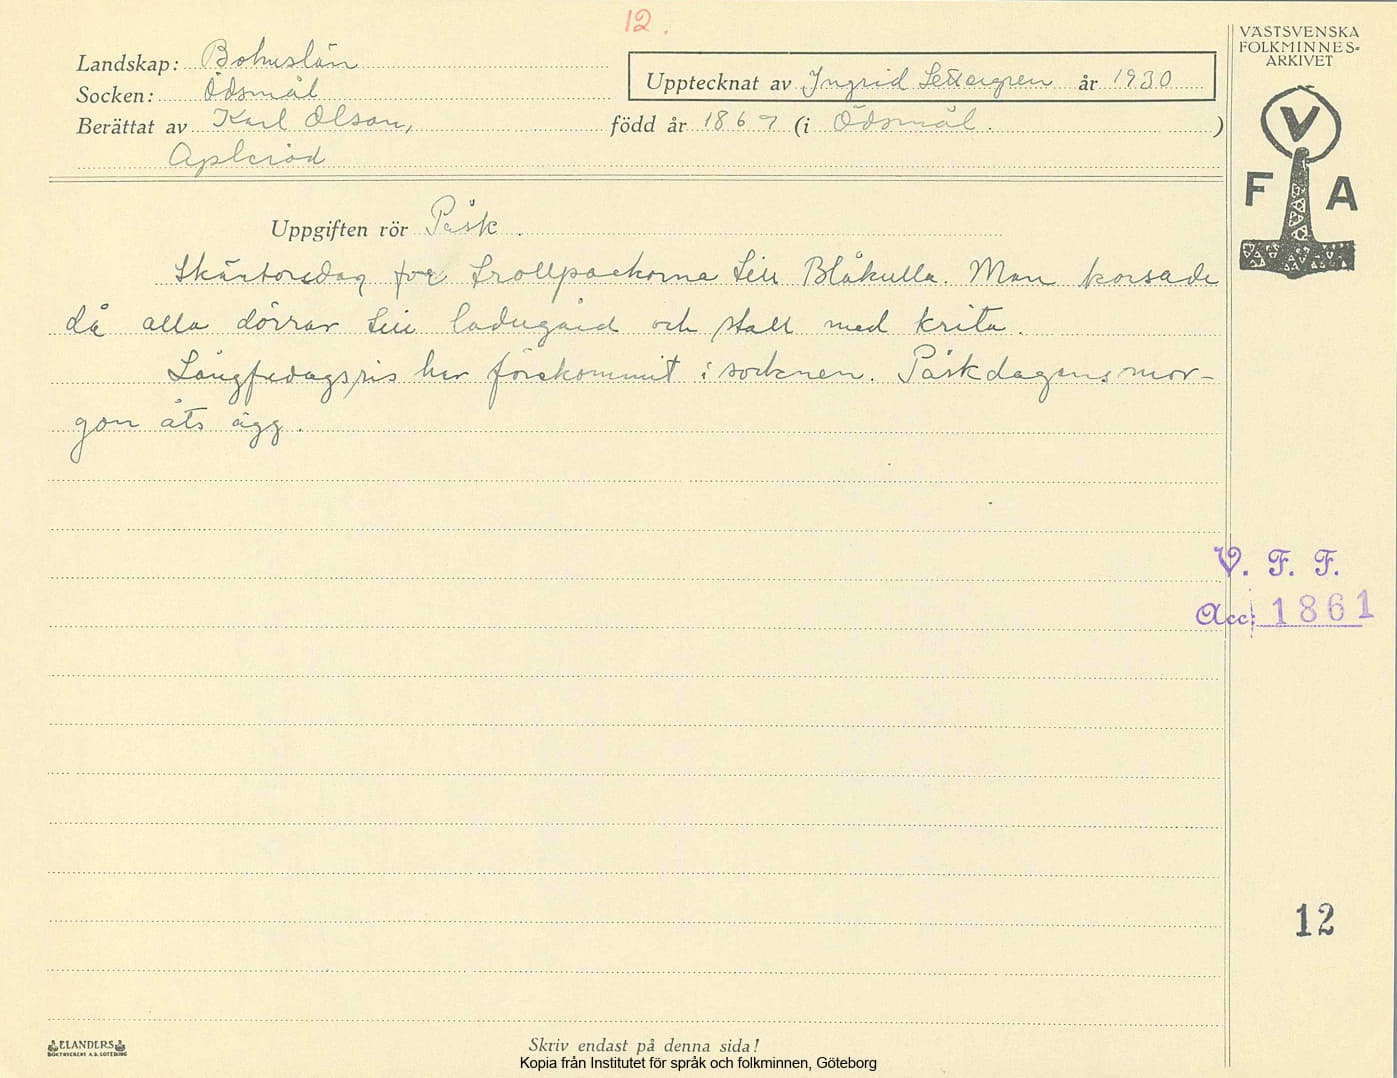 12.
VÄSTSVENSKA
FOLKMINNES-
ARKIVET
V
F A
Landskap: Bohuslän
Socken: Ödsmål
Upptecknat av Ingrid Settergren år 1930
Berättat av Karl Olson, född år 1867 (i Ödsmål.)
Apleröd
Uppgiften rör Påsk.
Skärtorsdag for trollpackorna till Blåkulla. Man korsade
då alla dörrar till ladugård och stall med krita.
Långfredagsris har förekommit i socknen. Påskdagens mor-
gon åts ägg.
V. F. F.
Acc: 1861
12
ELANDERS
BOKTRYCKERI A.B. GÖTEBORG
Skriv endast på denna sida!
Kopia från Institutet för språk och folkminnen, Göteborg